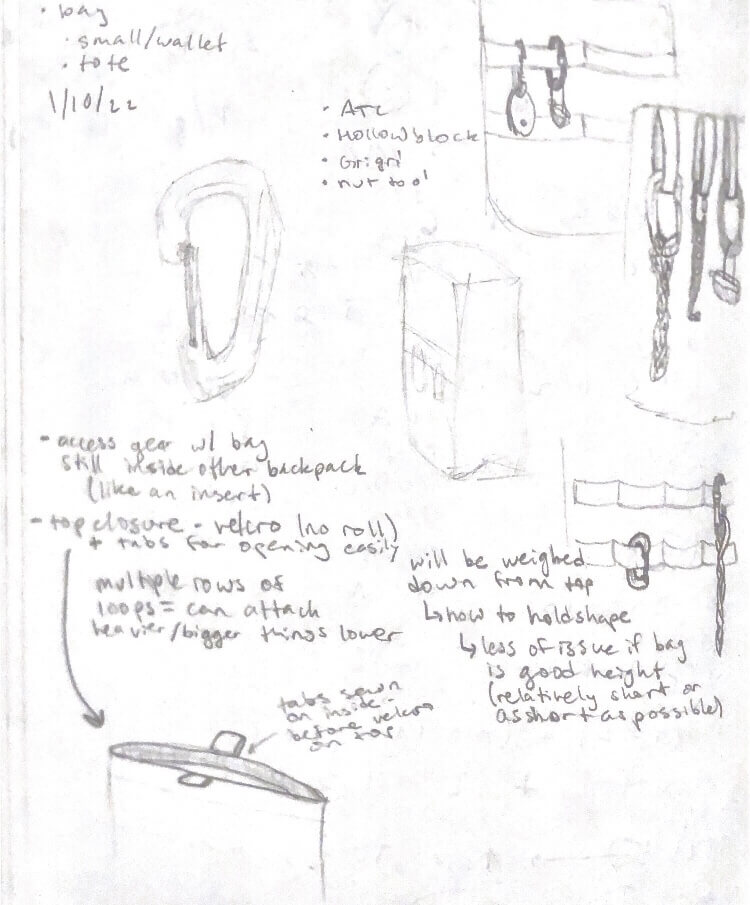 • bag
• small/wallet
• tote
1/10/22
• ATC
• Hollowblock
• Grigri
• nut tool
- access gear w/ bag
still inside other backpack
(like an insert)
- top closure - velcro (no roll)
+ tabs for opening easily
multiple rows of
loops = can attach
heavier/bigger things lower
will be weighed
down from top
↳ how to hold shape
↳ less of issue if bag
is good height
(relatively short or
as short as possible)
tabs sewn
on inside -
before velcro
on top